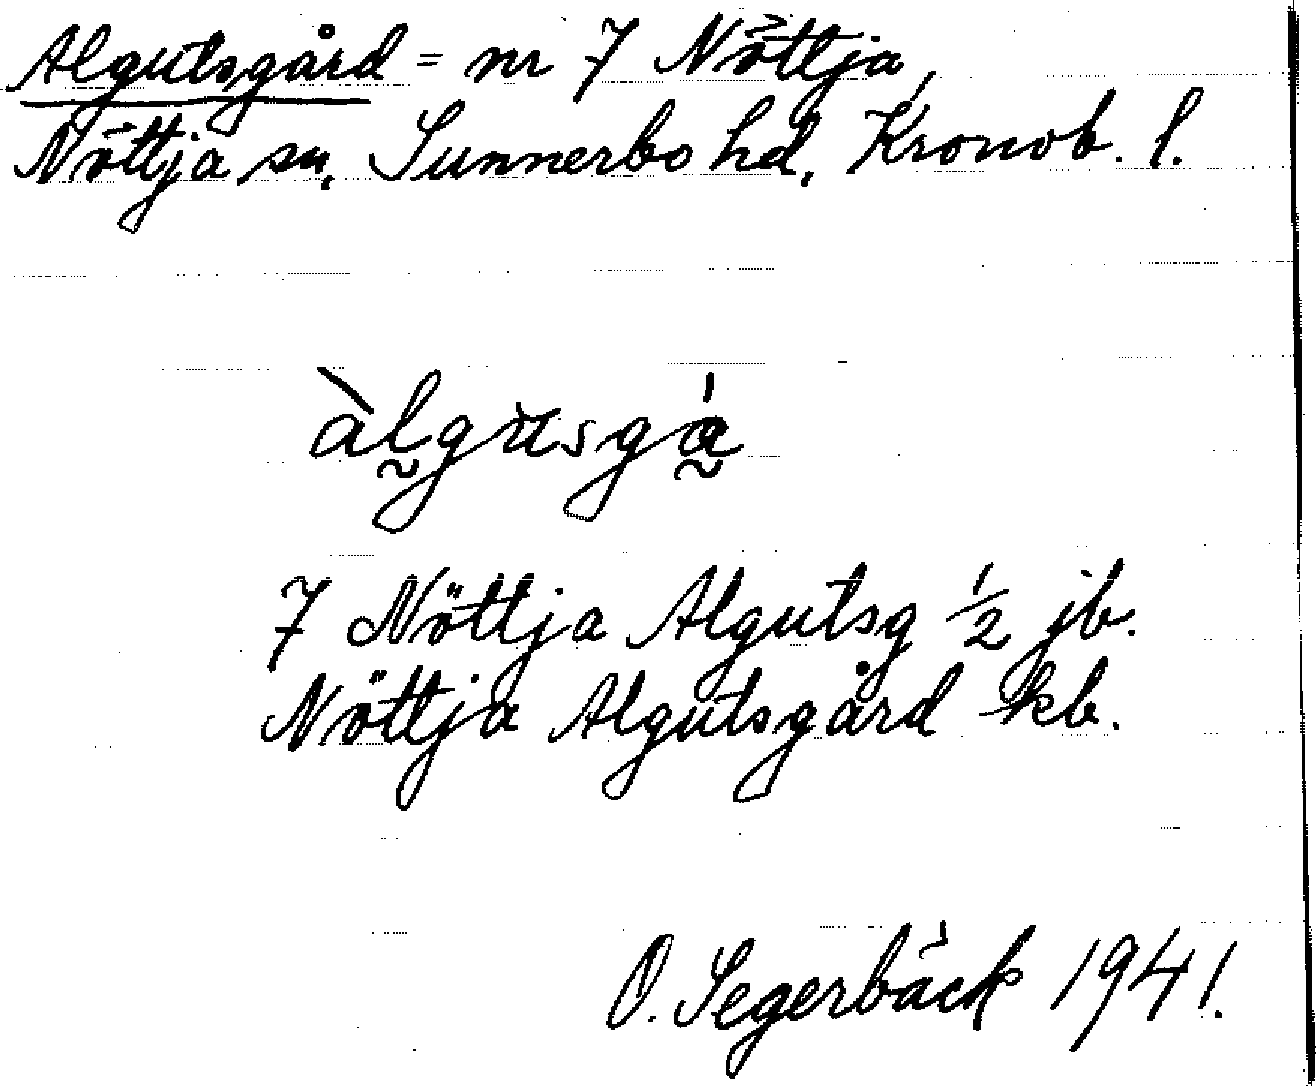 Algutsgård = nr 7 Nöttja,
Nöttja sn, Sunnerbo hd, Kronob. l.
7 Nöttja Algutsg 1/2 jb.
Nöttja Algutsgård kb.
O. Segerbäck 1941.